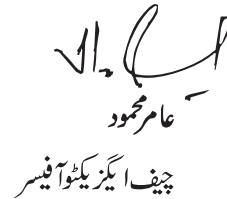 عامر محمود
چیف ایگزیکٹو آفیسر